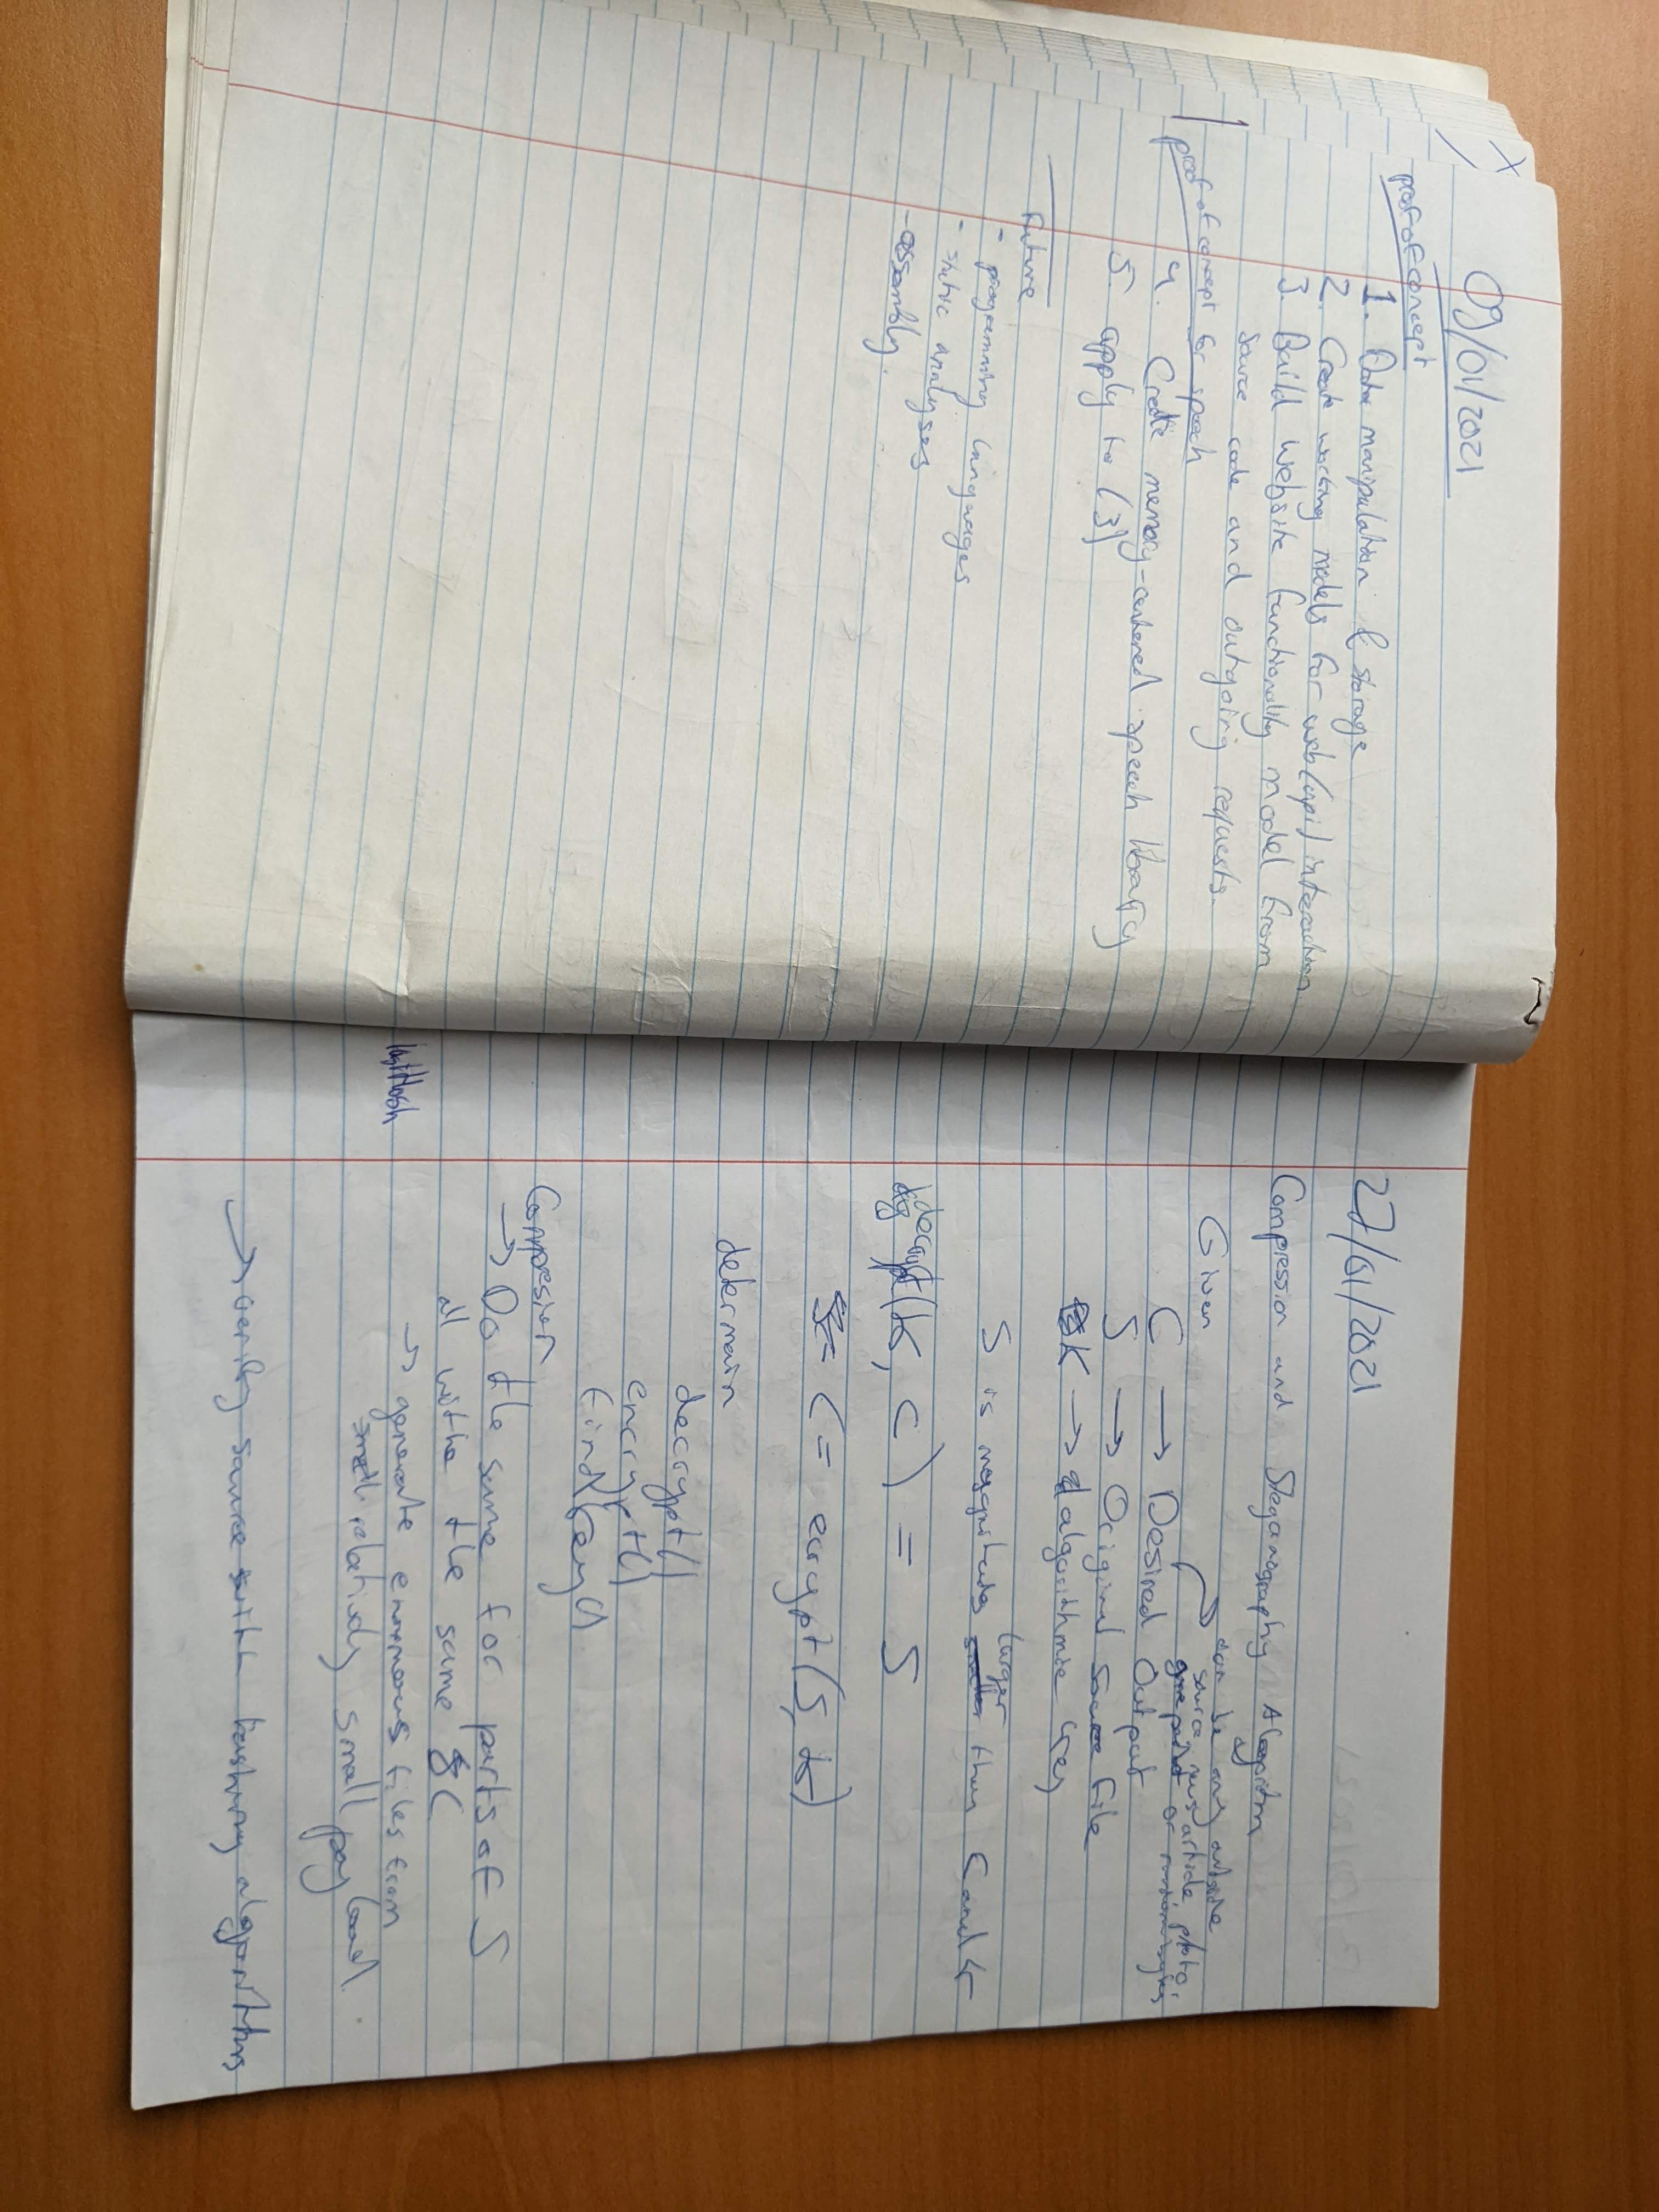 09/01/2021
proof of concept
1. Data manipulation & storage
2. Create working models for web(api) interaction
3. Build website functionality model from
source code and outgoing requests.
proof of concept for speech
4. Create memory-centered speech library
5. apply to (3)
Future
- programming languages
- static analyses
- assembly.
27/01/2021
Compression and Steganography Algoritm
Given
can be any outside
source, news article, photo,
or random bytes
C → Desired Output
S → Original Source File
K → algorithmic key
larger
S is magnitudes smaller then C and K
decrypt(K, C) = S
C = ecrypt(S, K)
determain
decrypt()
encrypt()
findKey()
Compression
→ Do the same for parts of S
all withe the same C
→ generate enormous files from
relatively small pay load.
→ verify source with hashing algorithms